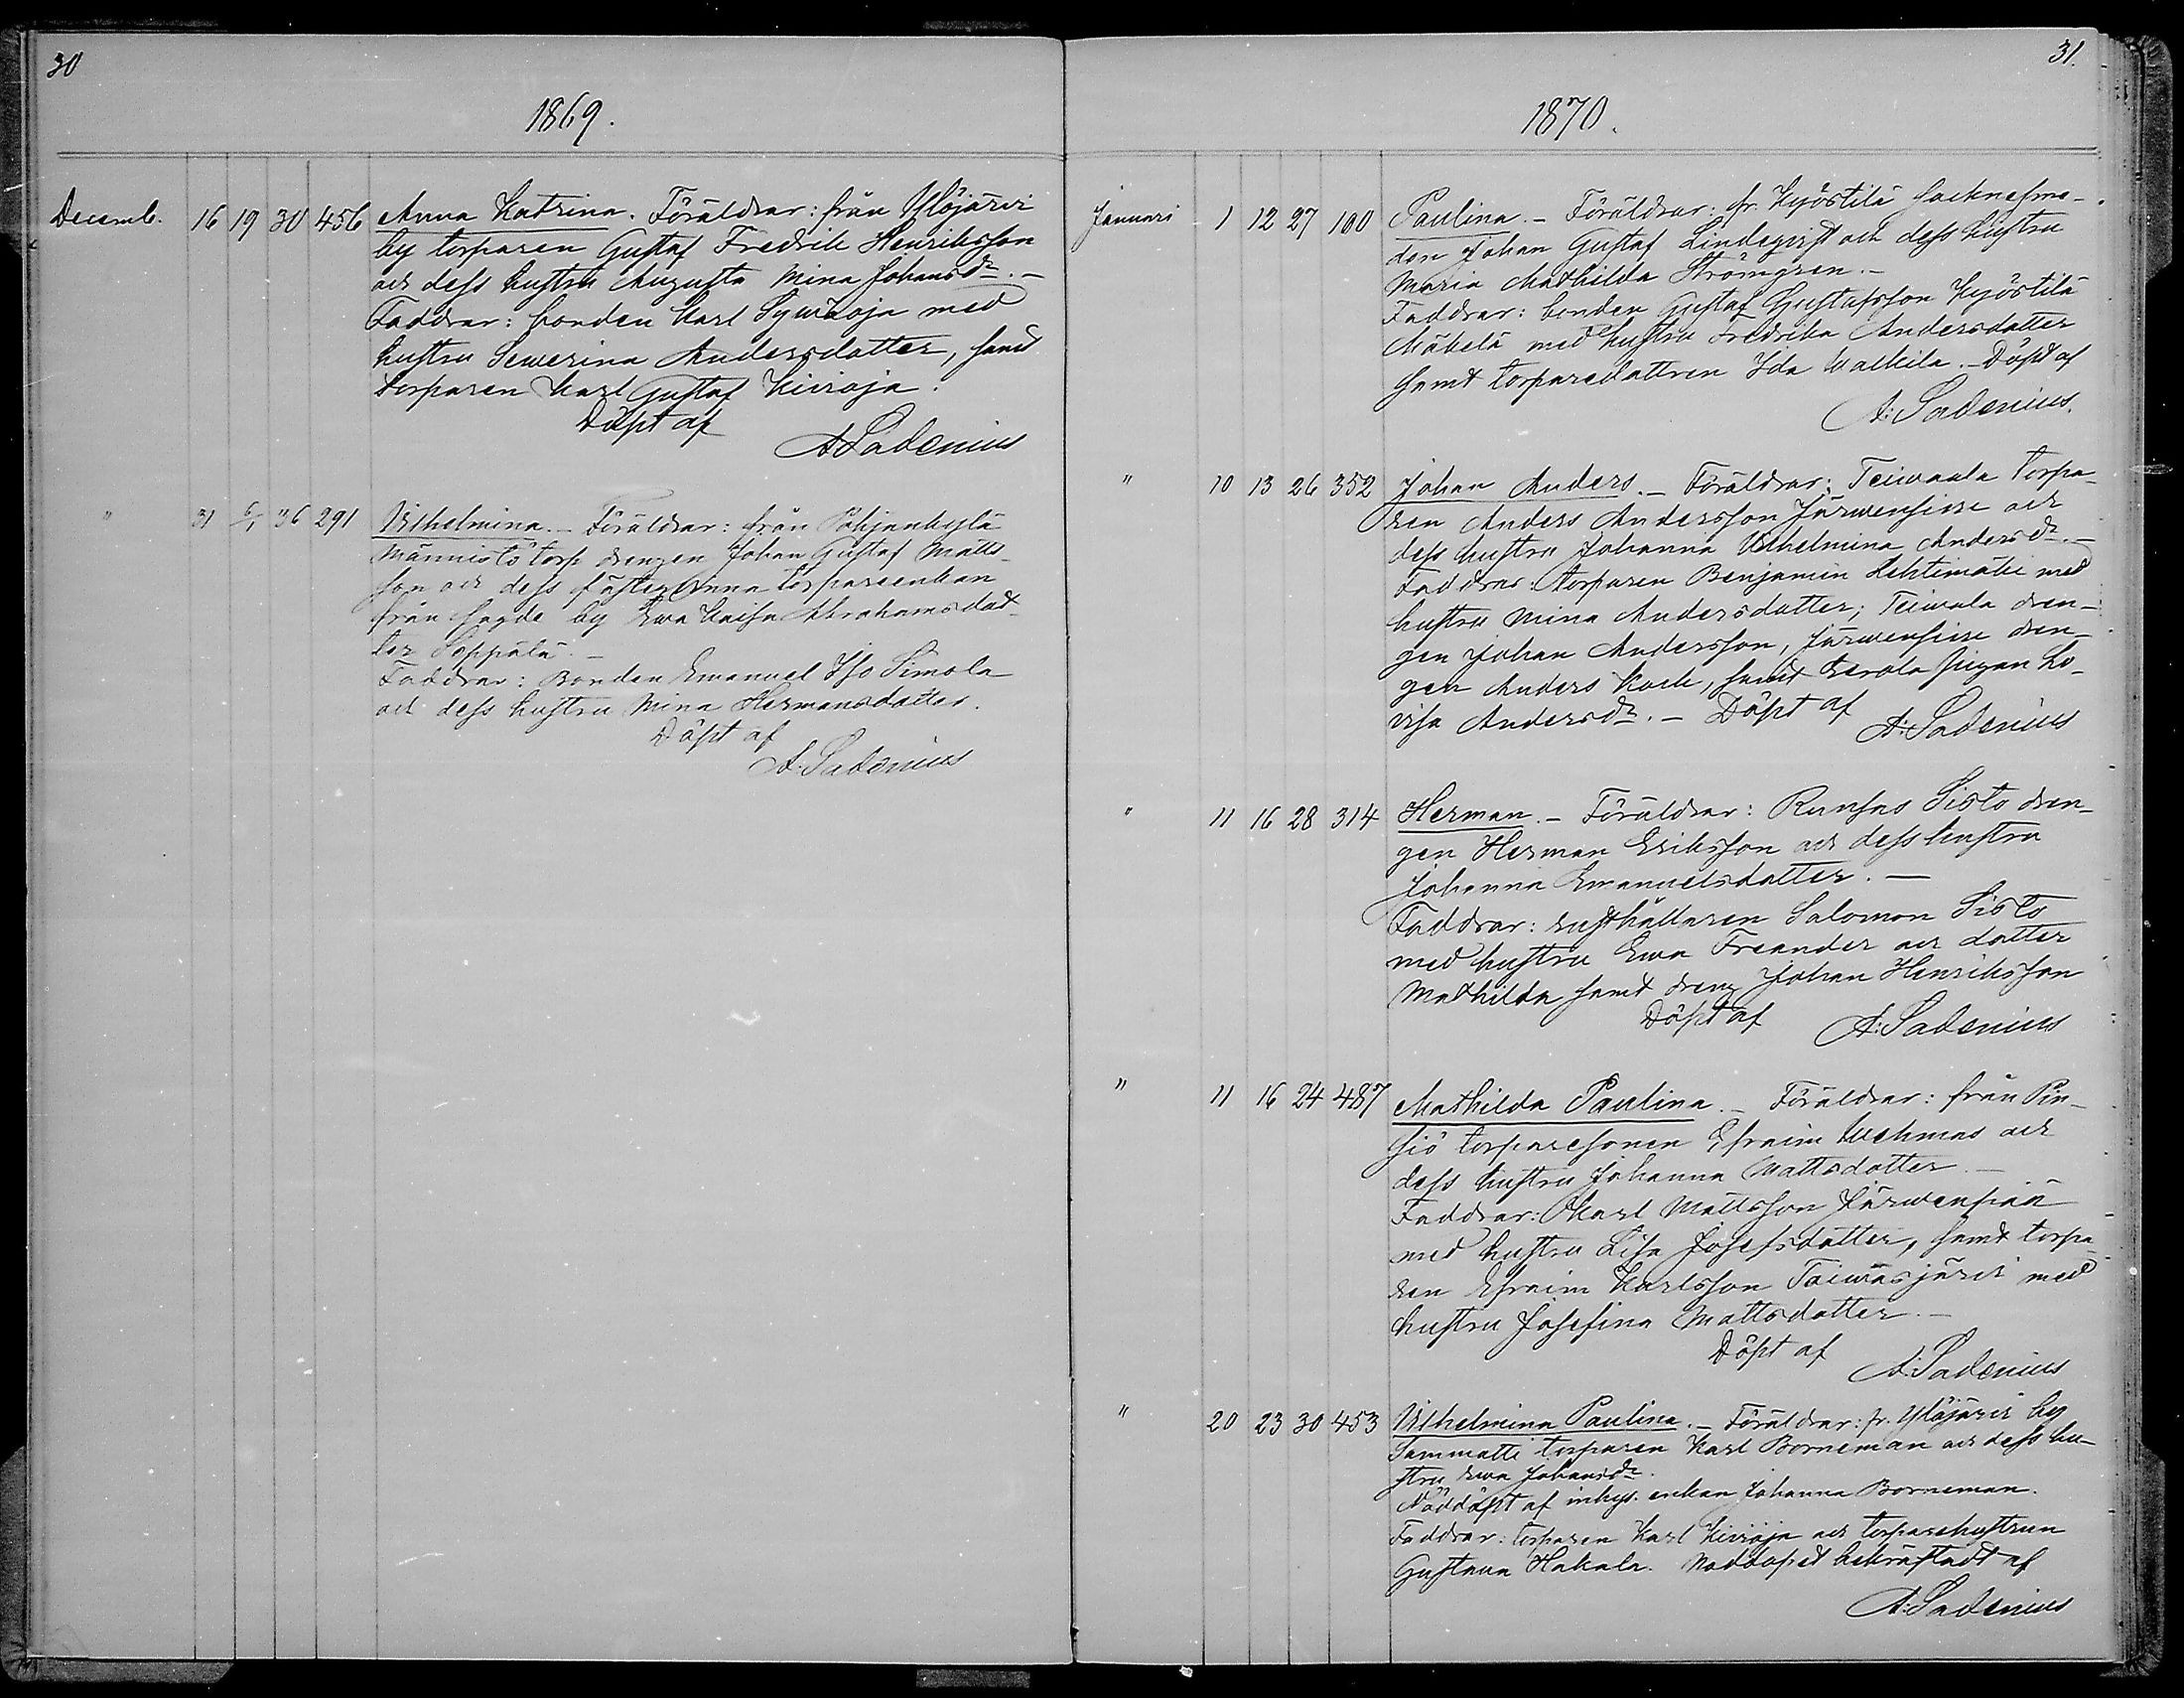 30
1869.
Decemb. 16 19 30 456 Anna Katrina. Föräldrar: från Ylöjärvi
by torparen Gustaf Fredrik Henriksson
och dess hustru Augusta Mina Johansdr. –
Faddrar: bonden Karl Sywäoja med
hustru Sewerina Andersdotter, samt
torparen Karl Gustaf Kiwioja.
Döpt af
A. Sadenius
" 31 6/1 36 291 Vilhelmina. – Föräldrar: från Pohjankylä
Männistö torp drengen Johan Gustaf Matts-
son och dess fästeqvinna torpareenkan
från sagde by Ewa Kaisa Abrahamsdot-
ter Seppälä. –
Faddrar: Bonden Emanuel Iso Simola
och dess hustru Mina Hermansdotter.
Döpt af
A. Sadenius
31.
1870.
Januari 1 12 27 100 Paulina. – Föräldrar: fr. Kyöstilä
den Johan Gustaf Lindeqvist och dess hustru
Maria Mathilda Strömgren. –
Faddrar: bonden Gustaf Gustafsson Kyöstilä
Mäkelä med hustru Fredrika Andersdotter
samt torparedottren Ida Walkila. – Döpt af
A: Sadenius.
" 10 13 26 352 Johan Anders. – Föräldrar: Teiwaala torpa-
ren Anders Andersson Järwensiwu och
dess hustru Johanna Vilhelmina Andersdr. –
Faddrar: torparen Benjamin Lehtimäki med
hustru Mina Andersdotter; Teiwala dren-
gen Johan Andersson, Järwensiwu dren-
gen Anders Koch, samt Kerola pigan Lo-
visa Andersdr. – Döpt af
A: Sadenius
" 11 16 28 314 Herman. – Föräldrar: Runsas Sisto dren-
gen Herman Eriksson och dess hustru
Johanna Emanuelsdotter. –
Faddrar: rusthållaren Salomon Sisto
med hustru Ewa Freander och dotter
Mathilda samt dreng Johan Henriksson
Döpt af
A: Sadenius
" 11 16 24 487 Mathilda Paulina. – Föräldrar: från Pin-
siö torparesonen Efraim Wehmas och
dess hustru Johanna Mattsdotter. –
Faddrar: Karl Mattsson Järwenpää
med hustru Lisa Josefsdotter, samt torpa-
ren Efraim Karlsson Taiwasjärvi med
hustru Josefina Mattsdotter. –
Döpt af
A: Sadenius
" 20 23 30 453 Vilhelmina Paulina. – Föräldrar: fr. Ylöjärvi by
Sammatti torparen Karl Borneman och dess hu-
stru Ewa Johansdr.
Nöddöpt af inhys. enkan Johanna Borneman.
Faddrar: torparen Karl Kiwioja och torparehustrun
Gustawa Hakala. Nöddopet bekräftadt af
A: Sadenius